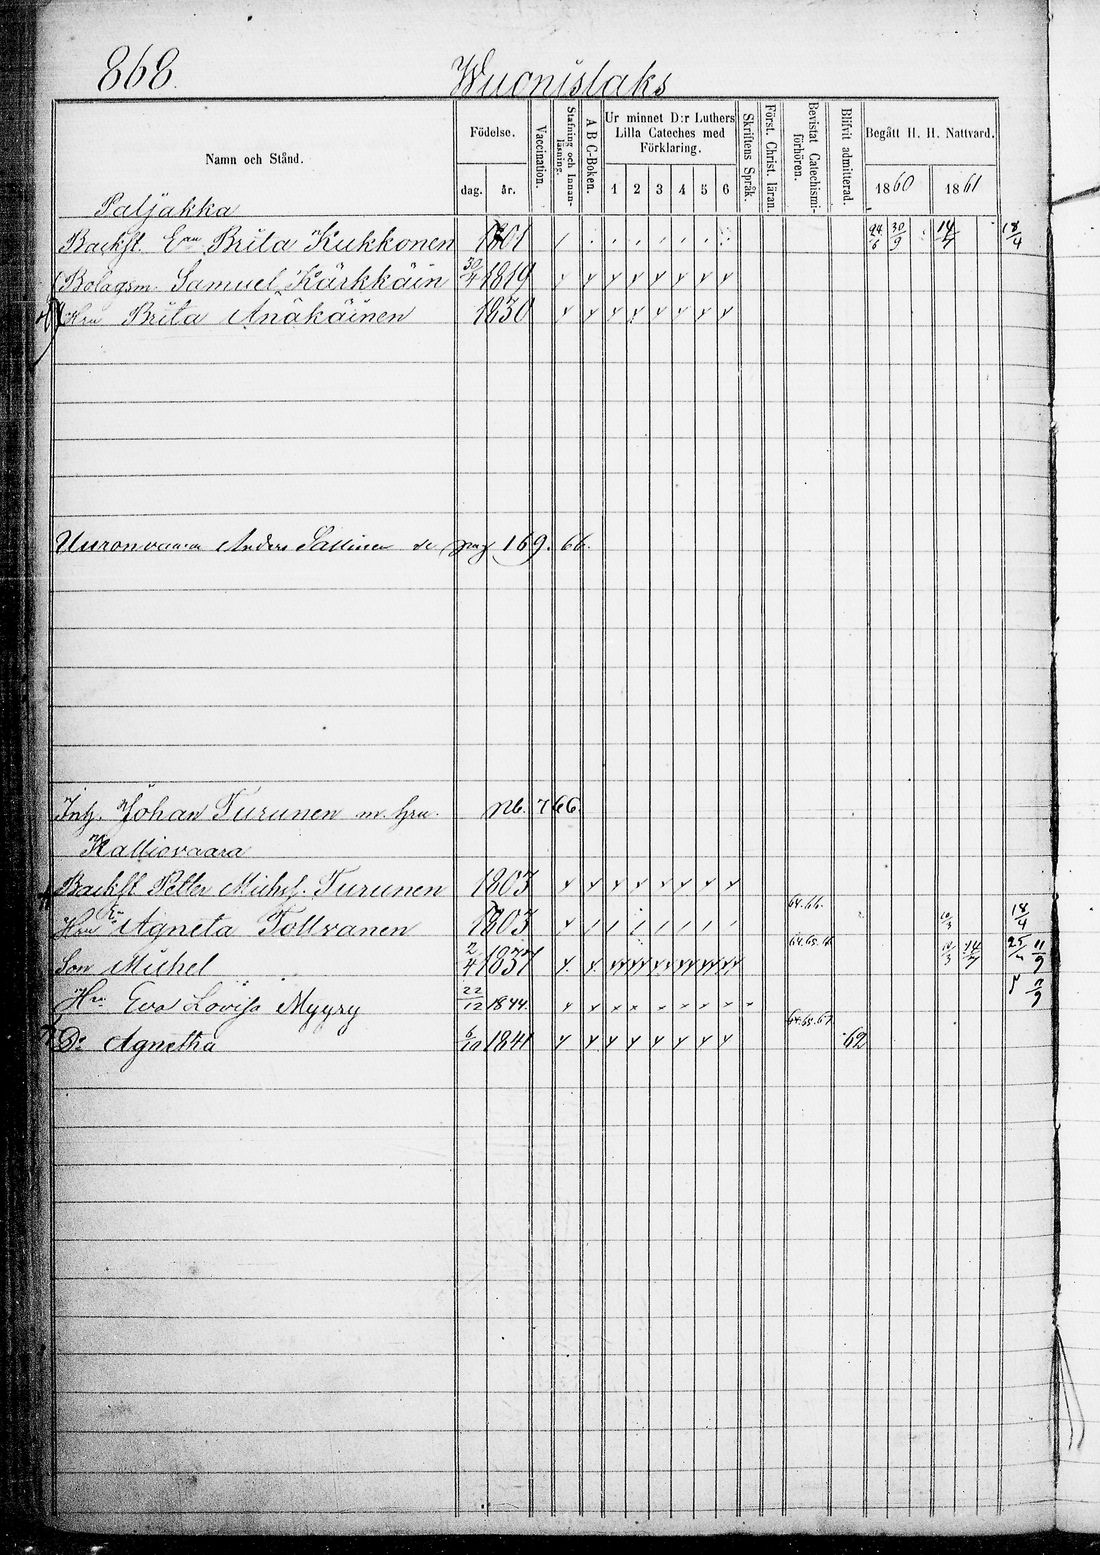 868. Wuonislaks
Namn och Stånd.
Födelse.
dag. år.
Vaccination.
Stafning och Innanläsning.
A B C-Boken.
Ur minnet D:r Luthers Lilla Cateches med Förklaring.
1 2 3 4 5 6
Skriftens Språk.
Först. Christ. läran.
Bevistat Catechismiförhören.
Blifvit admitterad.
Begått H. H. Nattvard.
1860 1861
Paljakka
Backst. E:an Brita Kukkonen 1801 24/6 30/9 14/7 18/4
Bolagsm. Samuel Kärkkäin 30/4 1819
Hru Brita Anäkäinen 1830
Uuronvaara Anders Sallinen se pag 169. 66.
Inh. Johan Turunen m. hru. 766.
Kalliovaara
Backst Petter Michss. Turunen 1803
Hru En Agneta Tolvanen 1803 64.66. 10/3 18/4
Son Michel 2/4 1837 64.65. 10/3 14/7 25/4 11/9
Hu Eva Lovisa Myyry 22/12 1844. 11/9
Dr Agnetha 6/10 1841 64.65.67. 62